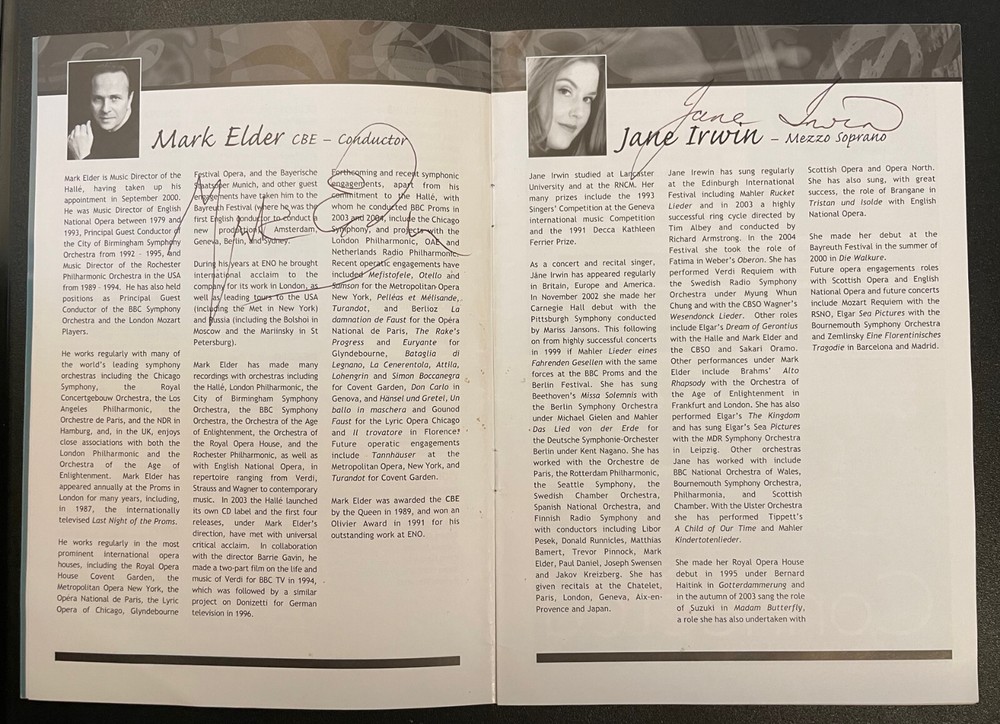 Mark Elder CBE – Conductor
Mark Elder is Music Director of the
Hallé, having taken up his
appointment in September 2000.
He was Music Director of English
National Opera between 1979 and
1993, Principal Guest Conductor of
the City of Birmingham Symphony
Orchestra from 1992 - 1995, and
Music Director of the Rochester
Philharmonic Orchestra in the USA
from 1989 - 1994. He has also held
positions as Principal Guest
Conductor of the BBC Symphony
Orchestra and the London Mozart
Players.
He works regularly with many of
the world's leading symphony
orchestras including the Chicago
Symphony, the Royal
Concertgebouw Orchestra, the Los
Angeles Philharmonic, the
Orchestre de Paris, and the NDR in
Hamburg, and, in the UK, enjoys
close associations with both the
London Philharmonic and the
Orchestra of the Age of
Enlightenment. Mark Elder has
appeared annually at the Proms in
London for many years, including,
in 1987, the internationally
televised Last Night of the Proms.
He works regularly in the most
prominent international opera
houses, including the Royal Opera
House Covent Garden, the
Metropolitan Opera New York, the
Opéra National de Paris, the Lyric
Opera of Chicago, Glyndebourne
Festival Opera, and the Bayerische
Staatsoper Munich, and other guest
engagements have taken him to the
Bayreuth Festival (where he was the
first English conductor to conduct a
new production), Amsterdam,
Geneva, Berlin, and Sydney.
During his years at ENO he brought
international acclaim to the
company for its work in London, as
well as leading tours to the USA
(including the Met in New York)
and Russia (including the Bolshoi in
Moscow and the Mariinsky in St
Petersburg).
Mark Elder has made many
recordings with orchestras including
the Hallé, London Philharmonic, the
City of Birmingham Symphony
Orchestra, the BBC Symphony
Orchestra, the Orchestra of the Age
of Enlightenment, the Orchestra of
the Royal Opera House, and the
Rochester Philharmonic, as well as
with English National Opera, in
repertoire ranging from Verdi,
Strauss and Wagner to contemporary
music. In 2003 the Hallé launched
its own CD label and the first four
releases, under Mark Elder's
direction, have met with universal
critical acclaim. In collaboration
with the director Barrie Gavin, he
made a two-part film on the life and
music of Verdi for BBC TV in 1994,
which was followed by a similar
project on Donizetti for German
television in 1996.
Forthcoming and recent symphonic
engagements, apart from his
commitment to the Hallé, with
whom he conducted BBC Proms in
2003 and 2004, include the Chicago
Symphony, and projects with the
London Philharmonic, OAE and
Netherlands Radio Philharmonic.
Recent operatic engagements have
included Mefistofele, Otello and
Samson for the Metropolitan Opera
New York, Pelléas et Mélisande,
Turandot, and Berlioz La
damnation de Faust for the Opéra
National de Paris, The Rake's
Progress and Euryante for
Glyndebourne, Bataglia di
Legnano, La Cenerentola, Attila,
Lohengrin and Simon Boccanegra
for Covent Garden, Don Carlo in
Genova, and Hänsel und Gretel, Un
ballo in maschera and Gounod
Faust for the Lyric Opera Chicago
and Il trovatore in Florence.
Future operatic engagements
include Tannhäuser at the
Metropolitan Opera, New York, and
Turandot for Covent Garden.
Mark Elder was awarded the CBE
by the Queen in 1989, and won an
Olivier Award in 1991 for his
outstanding work at ENO.
Jane Irwin
Jane Irwin – Mezzo Soprano
Jane Irwin studied at Lancaster
University and at the RNCM. Her
many prizes include the 1993
Singers' Competition at the Geneva
international music Competition
and the 1991 Decca Kathleen
Ferrier Prize.
As a concert and recital singer,
Jane Irwin has appeared regularly
in Britain, Europe and America.
In November 2002 she made her
Carnegie Hall debut with the
Pittsburgh Symphony conducted
by Mariss Jansons. This following
on from highly successful concerts
in 1999 if Mahler Lieder eines
Fahrenden Gesellen with the same
forces at the BBC Proms and the
Berlin Festival. She has sung
Beethoven's Missa Solemnis with
the Berlin Symphony Orchestra
under Michael Gielen and Mahler
Das Lied von der Erde for
the Deutsche Symphonie-Orchester
Berlin under Kent Nagano. She has
worked with the Orchestre de
Paris, the Rotterdam Philharmonic,
the Seattle Symphony, the
Swedish Chamber Orchestra,
Spanish National Orchestra, and
Finnish Radio Symphony and
with conductors including Libor
Pesek, Donald Runnicles, Matthias
Bamert, Trevor Pinnock, Mark
Elder, Paul Daniel, Joseph Swensen
and Jakov Kreizberg. She has
given recitals at the Chatelet,
Paris, London, Geneva, Aix-en-
Provence and Japan.
Jane Irewin has sung regularly
at the Edinburgh International
Festival including Mahler Rucket
Lieder and in 2003 a highly
successful ring cycle directed by
Tim Albey and conducted by
Richard Armstrong. In the 2004
Festival she took the role of
Fatima in Weber's Oberon. She has
performed Verdi Requiem with
the Swedish Radio Symphony
Orchestra under Myung Whun
Chung and with the CBSO Wagner's
Wesendonck Lieder. Other roles
include Elgar's Dream of Gerontius
with the Halle and Mark Elder and
the CBSO and Sakari Oramo.
Other performances under Mark
Elder include Brahms' Alto
Rhapsody with the Orchestra of
the Age of Enlightenment in
Frankfurt and London. She has also
performed Elgar's The Kingdom
and has sung Elgar's Sea Pictures
with the MDR Symphony Orchestra
in Leipzig. Other orchestras
Jane has worked with include
BBC National Orchestra of Wales,
Bournemouth Symphony Orchestra,
Philharmonia, and Scottish
Chamber. With the Ulster Orchestra
she has performed Tippett's
A Child of Our Time and Mahler
Kindertotenlieder.
She made her Royal Opera House
debut in 1995 under Bernard
Haitink in Gotterdammerung and
in the autumn of 2003 sang the role
of Suzuki in Madam Butterfly,
a role she has also undertaken with
Scottish Opera and Opera North.
She has also sung, with great
success, the role of Brangane in
Tristan und Isolde with English
National Opera.
She made her debut at the
Bayreuth Festival in the summer of
2000 in Die Walkure.
Future opera engagements roles
with Scottish Opera and English
National Opera and future concerts
include Mozart Requiem with the
RSNO, Elgar Sea Pictures with the
Bournemouth Symphony Orchestra
and Zemlinsky Eine Florentinisches
Tragodie in Barcelona and Madrid.